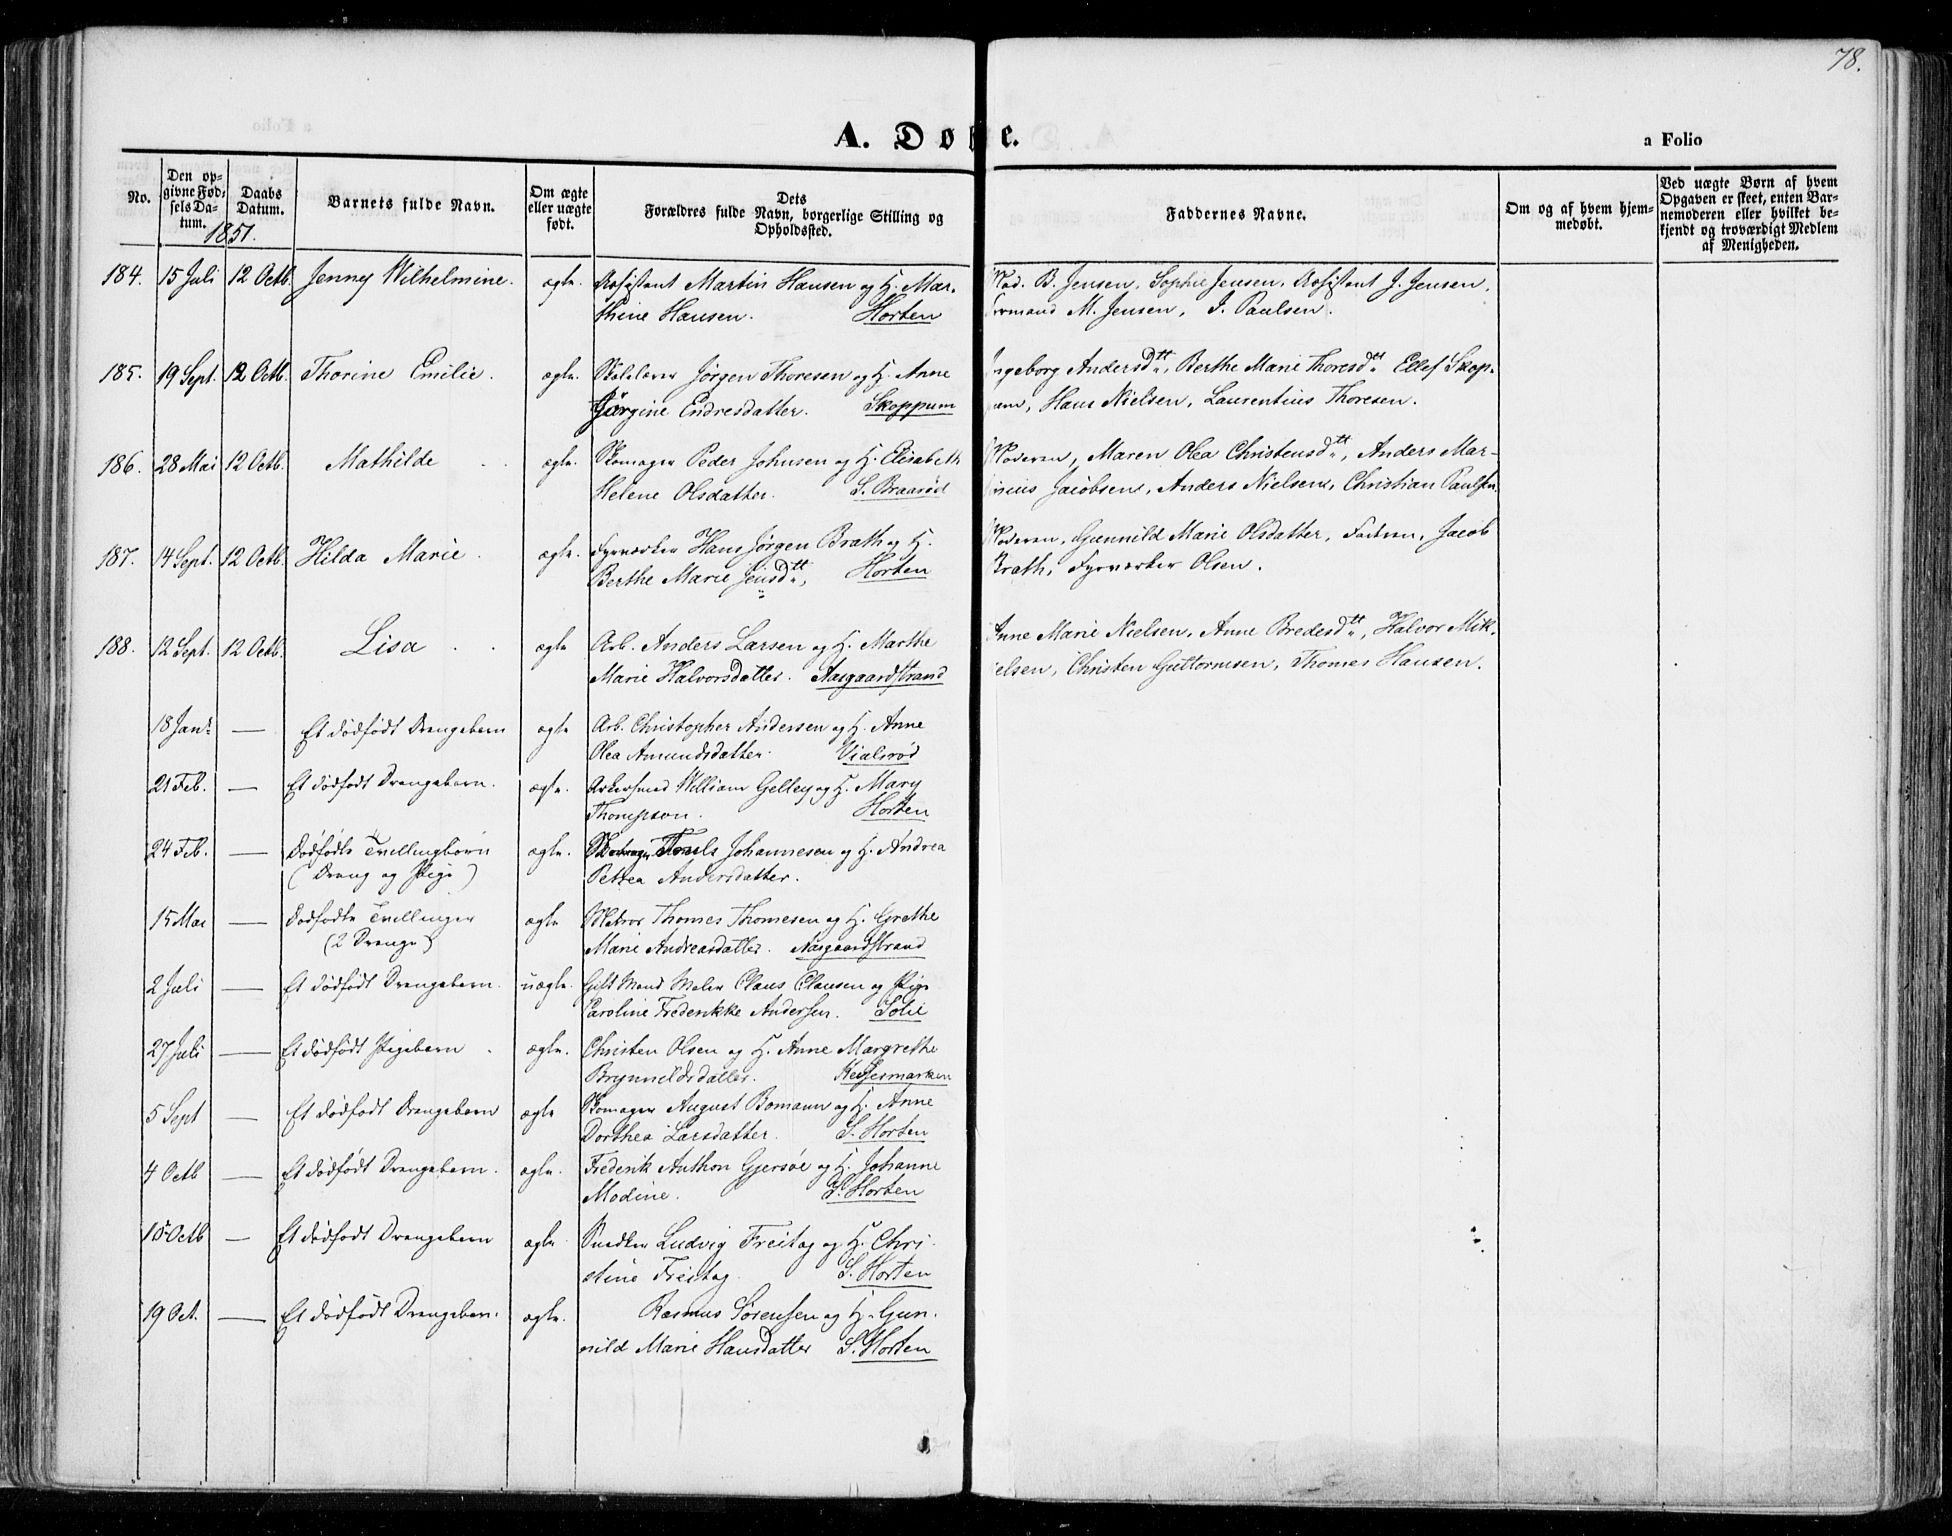 78.
A. Døbte.
a Folio
No.
Den op-
givne Fød-
sels Da-
tum.
Daabs
Datum.
Barnets fulde Navn.
Om ægte
eller uægte
født.
Dets
Forældres fulde Navn, borgerlige Stilling og
Opholdssted.
Faddernes Navne.
Om og af hvem hjem-
medøbt.
Ved uægte Børn af hvem
Opgaven er skeet, enten Bar-
nemoderen eller hvilket be-
kjendt og troværdigt Medlem
af Menigheden.
1851.
184. 15 Juli 12 Octb. Jenny Wilhelmine. ægte. Martin Hansen og H. Mar-
thine Hansen. Horten
Mad. B. Jensen, Sophie Jensen, J. Jensen,
Formand M. Jensen, J. Paulsen.
185. 19 Sept. 12 Octb. Thorine Emilie. ægte. Skolelærer Jørgen Thoresen og H. Anne
Jørgine Endresdatter. Skoppum
Ingeborg Andersdtt, Berthe Marie Thoresdtt Ellef Skop-
pum, Hans Nielsen, Laurentius Thoresen.
186. 28 Mai 12 Octb. Mathilde ægte. Skomager Peder Johnsen og H. Elisabeth
Helene Olsdatter. S. Braarød
Moderen, Maren Olea Christensdtt, Anders Mar-
inius Jacobsen, Anders Nielsen, Christian Paulsen.
187. 14 Sept. 12 Octb. Hilda Marie. ægte. Fyrværker Hans Jørgen Brath og H.
Berthe Marie Jensdtt, Horten
Moderen, Gunnild Marie Olsdatter, Faderen, Jacob
Brath, Fyrværker Olsen.
188. 12 Sept. 12 Octb. Lisa ægte Arb. Anders Larsen og H. Marthe
Marie Halvorsdatter. Aasgaardstrand
Anne Marie Nielsen, Anne Bredesdtt, Halvor Mik-
elsen, Christen Guttormsen, Thomes Hansen.
18 Jan. — Et dødfødt Drengebarn ægte Arb. Christopher Andersen og H. Anne
Olea Amundsdatter. Vialsrød
21 Feb. — Et dødfødt Drengebarn. ægte. Ankersmed William Gelley og H. Mary
Thompson. Horten
24 Feb. — Dødfødte Tvillingbørn ægte. Johannesen og H. Andrea
(Dreng og Pige) Petrea Andersdatter.
15 Mai — Dødfødte Tvillinger ægte Matros Thomes Thomesen og H. Grethe
(2 Drenge) Marie Andreasdatter. Aasgaardstrand
2 Juli — Et dødfødt Drengebarn. uægte. Gift Mand Maler Claus Clausen og Pige
Caroline Frederikke Andersen. Solie
27 Juli — Et dødfødt Pigebarn. ægte. Christen Olsen og H. Anne Margrethe
Brynnildsdatter. Keisemarken
5 Sept — Et dødfødt Drengebarn ægte Skomager August Bomann og H. Anne
Dorthea Larsdatter. S. Horten
4 Octb — Et dødfødt Drengebarn. ægte. Frederik Anthon Gjersøe og H. Johanne
Modine. S. Horten
15 Octb — Et dødfødt Drengebarn ægte Snedker Ludvig Freitag og H. Chri-
stine Freitag. S. Horten
19 Oct. — Et dødfødt Drengebarn. ægte. Rasmus Sørensen og H. Gun-
nild Marie Hansdatter S. Horten